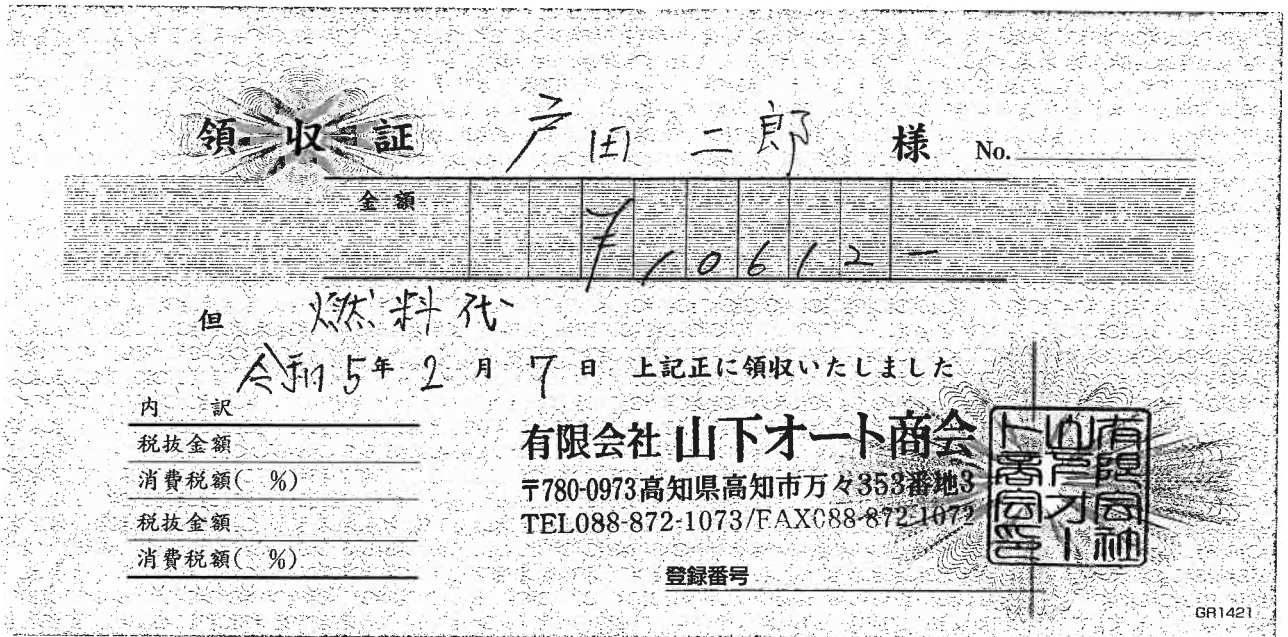 領収証 戸田二郎 様 No.
金額 ¥10612-
但 燃料代
令和5年2月7日 上記正に領収いたしました
内 訳
税抜金額
消費税額( %)
税抜金額
消費税額( %)
有限会社 山下オート商会
〒780-0973高知県高知市万々353番地3
TEL088-872-1073/FAX088-872-1072
有限会社
山下オー
ト商会印
登録番号
GR1421